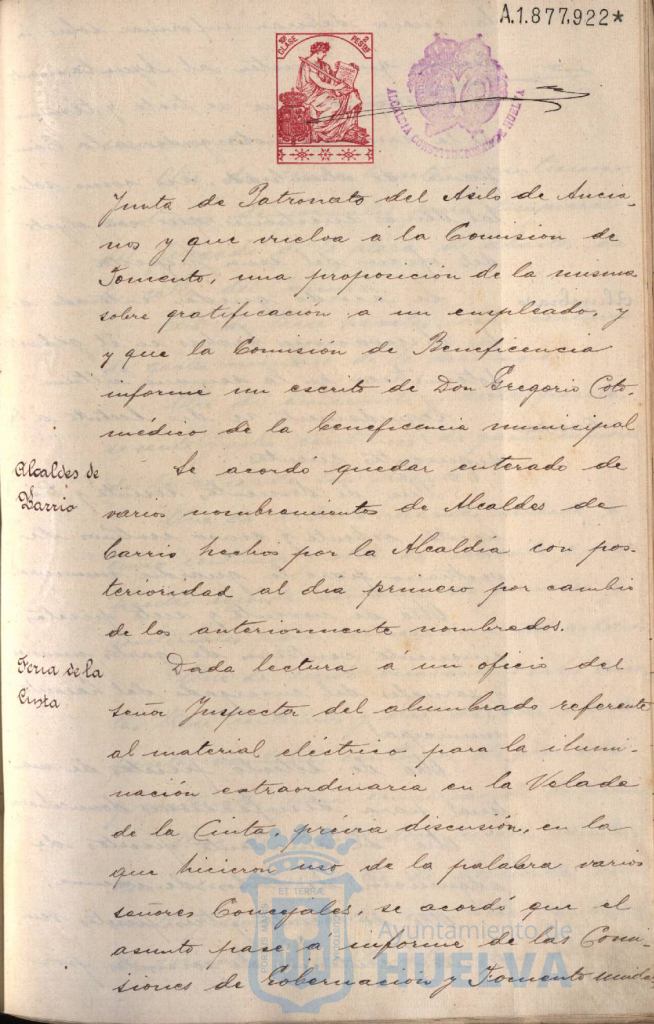 A.1.877.922*
10ª CLASE
2 PESETAS
ALCALDIA CONSTITUCIONAL HUELVA
Junta de Patronato del Asilo de Ancia-
nos y que vuelva á la Comision de
Fomento, una proposicion de la misma
sobre gratificacion á un empleado, y
y que la Comisión de Beneficencia
informe un escrito de Don Gregorio Coto
médico de la beneficencia municipal
Alcaldes de
Barrio
Se acordó quedar enterado de
varios nombramientos de Alcaldes de
barrio hechos por la Alcaldía con pos-
terioridad al dia primero por cambio
de los anteriormente nombrados.
Feria de la
Cinta
Dada lectura a un oficio del
señor Inspector del alumbrado referente
al material eléctrico para la ilumi-
nación extraordinaria en la Velada
de la Cinta, prévia discusión, en la
que hicieron uso de la palabra varios
señores Concejales, se acordó que el
asunto pase á informe de las Comi-
siones de Gobernación y Fomento
Ayuntamiento de
HUELVA